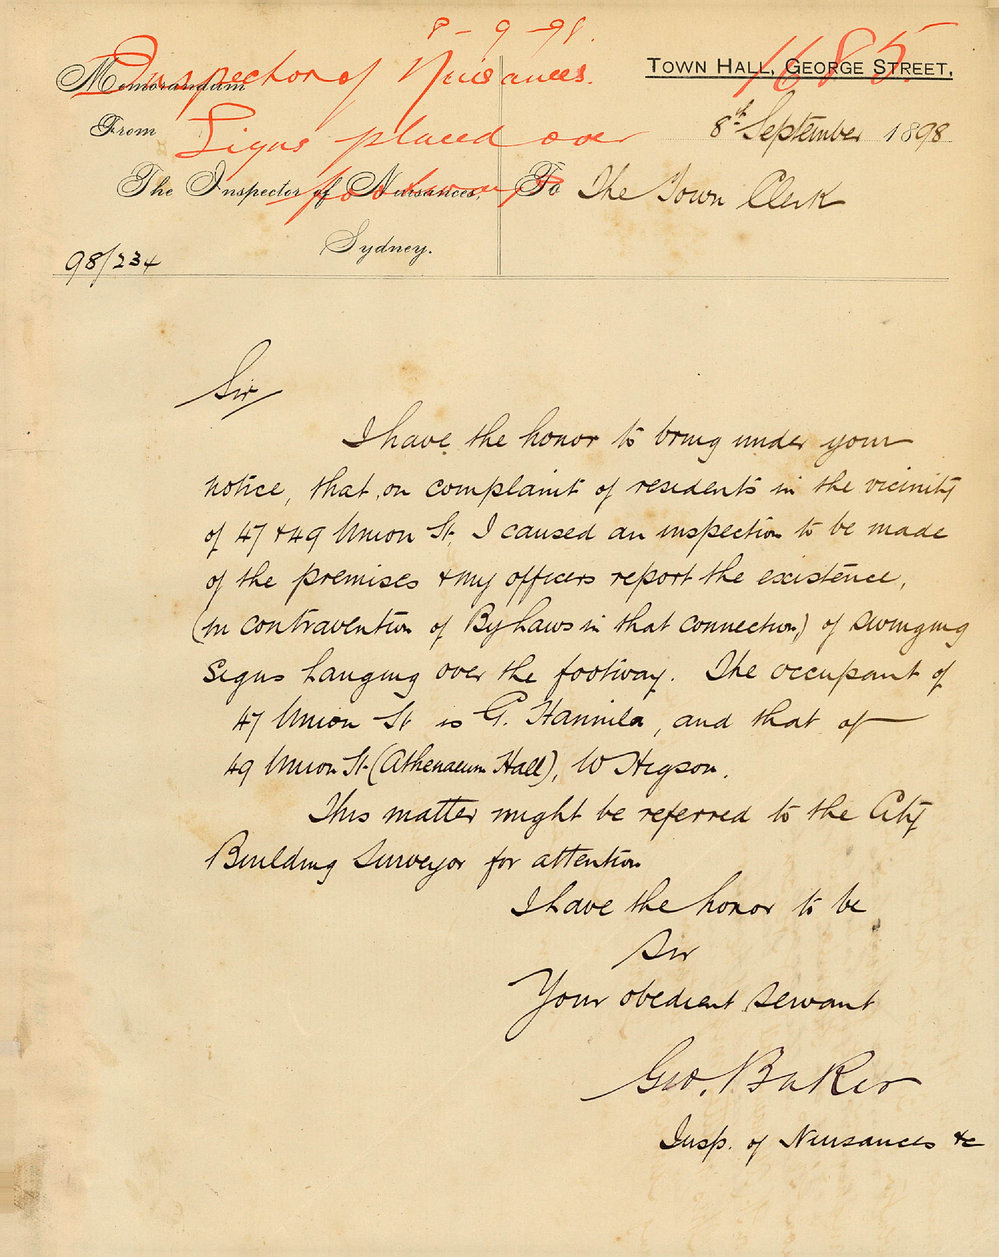 8-9-98.
1685.
Inspector of Nuisances.
Signs placed over
footway
Memorandum
From
The Inspector of Nuisances,
Sydney.
98/234
TOWN HALL, GEORGE STREET,
8th September 1898
To The Town Clerk
Sir
I have the honor to bring under your
notice, that, on complaint of residents in the vicinity
of 47 & 49 Union St. I caused an inspection to be made
of the premises & my officers report the existence,
(in contravention of By Laws in that connection,) of swinging
Signs hanging over the footway. The occupant of
47 Union St is G. Hannila, and that of
49 Union St (Athenaeum Hall), W Higson.
This matter might be referred to the City
Building Surveyor for attention
I have the honor to be
Sir
Your obedient servant
Geo. Baker
Insp. of Nuisances &c